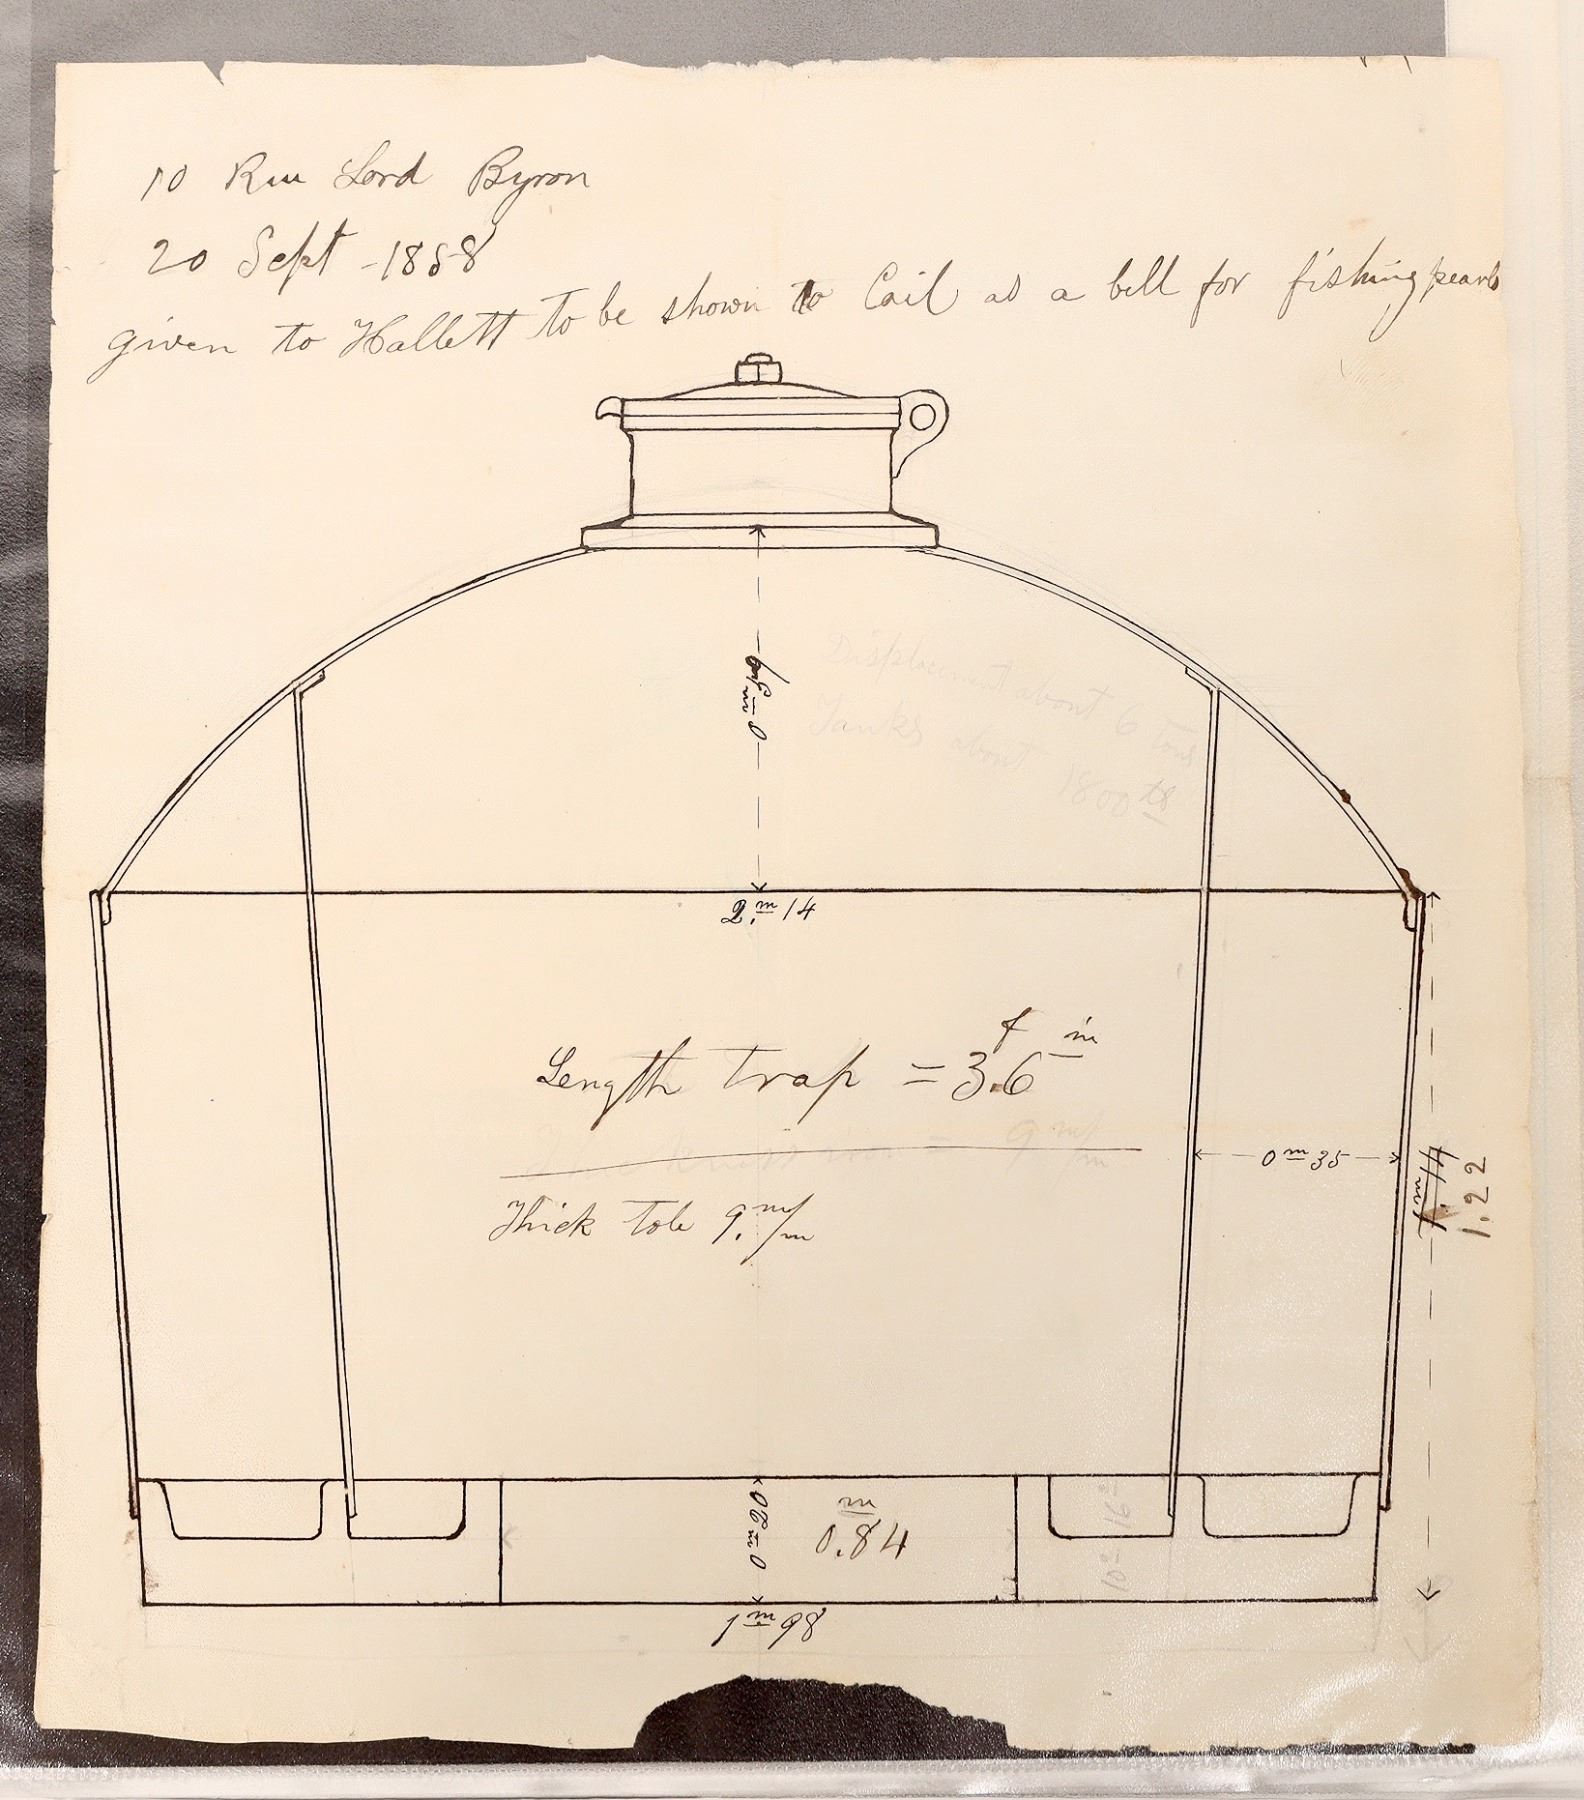 10 Rue Lord Byron
20 Sept - 1858
given to Hallett to be shown to Cail as a bell for fishing pearls
Displacement about 6 tons
Tanks about 1800 ℔
2 m 14
Length trap = 3 f . 6 in
= 9 m/m
Thick tole 9. m/m
0 m 35
1.22
0 m 20
0.84 m
1 m 98